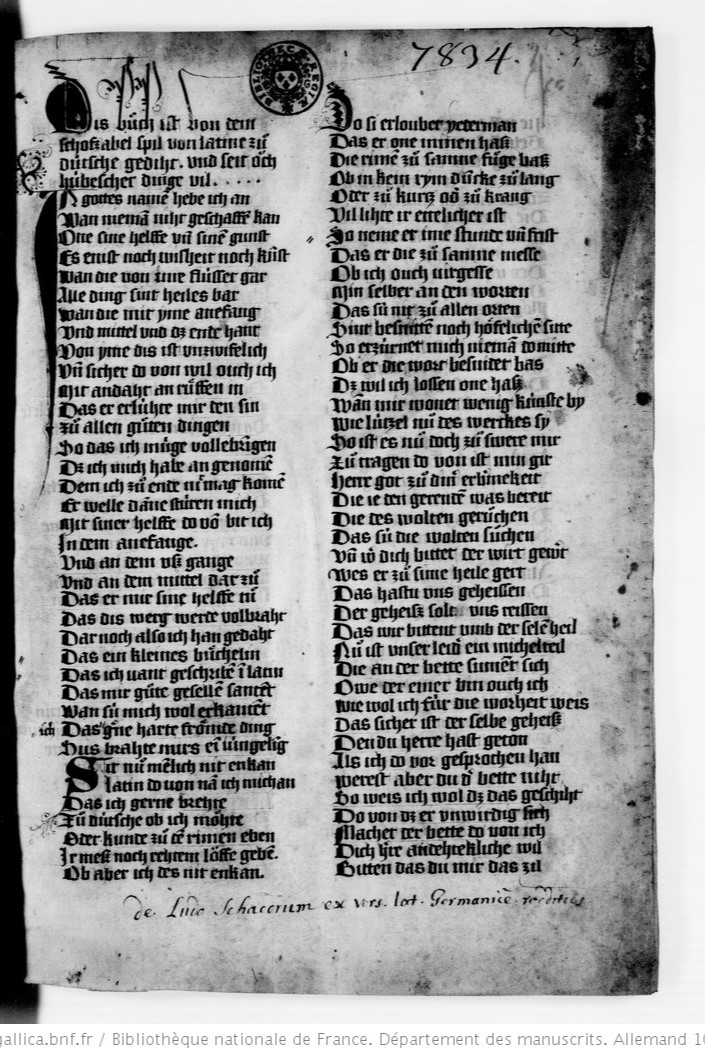 7834.
BIBLIOTHECÆ REGIÆ
Dis bůch ist von dem
schofzabel spil von latine zů
dütsche gediht. vnd seit öch
hübescher dinge vil . . . . .
In gottes namē hebe ich an
Wan niemā niht geschaffē kan
One sine helffe vn̄ sinē gunst
Es enist noch wisheit noch kūst
Wan die von ime flüsset gar
Alle ding sint heiles bar
wan die mit yme anefang
Vnd mittel vnd dz ende hant
Von yme dis ist vnzwifelich
Vn̄ sicher do von wil ouch ich
Mit andaht an rüffen in
Das er erlühte mir den sin
zů allen gůten dingen
So das ich müge vollebringen
Dz ich mich habe an genomē
Dem ich zů ende nüt mag komē
Er welle dāne stüren mich
Mit siner helffe do vō bit ich
In dem anefange.
Vnd an dem vsz gange
Vnd an dem mittel dar zů
Das er mir sine helffe tů
Das dis werg werde volbraht
Dar noch also ich han gedaht
Das ein kleines büchelin
Das ich vant geschribē ī latin
Das mir gůte gesellē santēt
Wan sü mich wol erkantēt
ich Das gͥne harte frömde ding
Sus brahte mirs eī iüngelīg
Sit nu mēlich nit enkan
latin do von nā ich mich an
Das ich gerne brehte
Zů dütsche ob ich möhte
Oder kunde zů tē rimen eben
Ir mesz noch rehtem löffe gebē.
Ob aber ich des nit enkan.
Do si erlouber yederman
Das er one minen hasz
Die rimē zů samne füge basz
Ob in kein rym dūcke zů lang
Oder zů kurtz od' zů krang
Vil lihte ir ettelicher ist
So neme er ime stunde vn̄ frist
Das er die zů samne messe
Ob ich ouch vergesse
Min selber an den worten
Das sü nit zů allen orten
Sint besnittē noch höfelichē sitte
So erzürnet mich niemā do mitte
Ob er die wort besnidet bas
Dz wil ich lossen one hasz
Wān mir wonet wenig künste by
Wie lützel nu des werckes sy
So ist es nu doch zů swere mir
Zů tragen do von ist min gir
Herre got zů dinr erbͥmekeit
Die ie den gerendē was bereit
Die des wolten gerüchen
Das sü die wolten süchen
Vn̄ wͦ dich bittet der wirt gewͦt
Wes er zů sime heile gert
Das hastu vns geheissen
Der geheisz solt vns reissen
Das wir bittent vmb der selē heil
Nu ist vnser leidͥ ein michelteil
Die an der bette sumēt sich
Owe der einer bin ouch ich
wie wol ich für die worheit weis
Das sicher ist der selbe geheisz
Den du herre hast geton
Als ich do vor gesprochen han
werest aber du dͥ bette niht
So weis ich wol dz das geschiht
Do von dz er vnwirdig sich
Machet der bette do von ich
Dich hͥre andehtekliche wil
Bitten das du mir das zil
de Ludo Schacorum ex vers. lat. Germanicè redditus
gallica.bnf.fr / Bibliothèque nationale de France. Département des manuscrits. Allemand 1